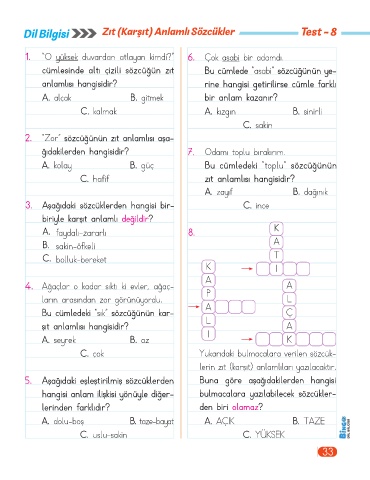 Dil Bilgisi
Zıt (Karşıt) Anlamlı Sözcükler
Test - 8
1. "O yüksek duvardan atlayan kimdi?"
cümlesinde altı çizili sözcüğün zıt
anlamlısı hangisidir?
A. alçak B. gitmek
C. kalmak
2. "Zor" sözcüğünün zıt anlamlısı aşa-
ğıdakilerden hangisidir?
A. kolay B. güç
C. hafif
3. Aşağıdaki sözcüklerden hangisi bir-
biriyle karşıt anlamlı değildir?
A. faydalı-zararlı
B. sakin-öfkeli
C. bolluk-bereket
4. Ağaçlar o kadar sıktı ki evler, ağaç-
ların arasından zor görünüyordu.
Bu cümledeki "sık" sözcüğünün kar-
şıt anlamlısı hangisidir?
A. seyrek B. az
C. çok
5. Aşağıdaki eşleştirilmiş sözcüklerden
hangisi anlam ilişkisi yönüyle diğer-
lerinden farklıdır?
A. dolu-boş B. taze-bayat
C. uslu-sakin
6. Çok asabi bir adamdı.
Bu cümlede "asabi" sözcüğünün ye-
rine hangisi getirilirse cümle farklı
bir anlam kazanır?
A. kızgın B. sinirli
C. sakin
7. Odamı toplu bırakırım.
Bu cümledeki "toplu" sözcüğünün
zıt anlamlısı hangisidir?
A. zayıf B. dağınık
C. ince
8.
K
A
T
I
K
A
P
A
L
I
A
L
Ç
A
K
Yukarıdaki bulmacalara verilen sözcük-
lerin zıt (karşıt) anlamlıları yazılacaktır.
Buna göre aşağıdakilerden hangisi
bulmacalara yazılabilecek sözcükler-
den biri olamaz?
A. AÇIK B. TAZE
C. YÜKSEK
33